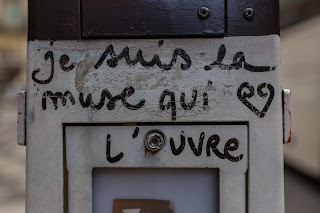 je suis la
muse qui e♡
L'uvre